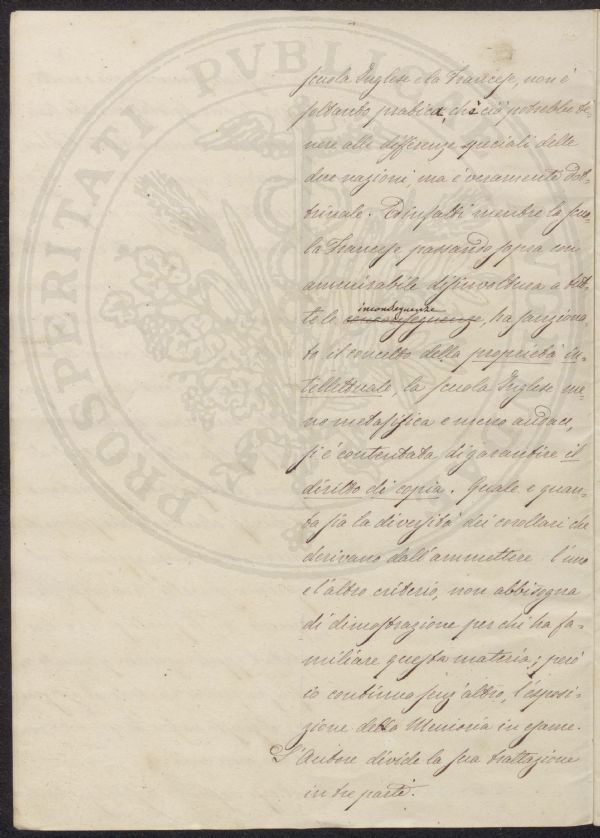 PROSPERITATI PVBLICAE
scuola Inglese e la Francese, non è
soltanto pratica, chè ciò potrebbe te-
nere alle differenze speciali delle
due nazioni, ma è veramente dot-
trinale. Ed infatti mentre la scuo-
la Francese passando sopra con
ammirabile disinvoltura a tut-
te le inconseguenze, ha sanziona
to il concetto della proprietà in-
tellettuale, la scuola Inglese me-
no metafisica e meno audace,
si è contentata di garantire il
diritto di copia. Quale e quan-
ta sia la diversità dei corollari che
derivano dall'ammettere l'uno
e l'altro criterio, non abbisogna
di dimostrazione per chi ha fa-
miliare questa materia; però
io continuo senz'altro, l'esposi-
zione della Memoria in esame.
L'Autore divide la sua trattazione
in tre parti.